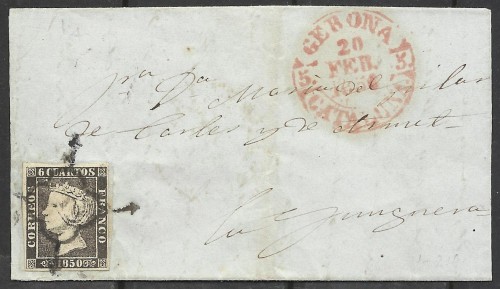 GERONA
20
FEB.
5 5
CATALUÑA
pa. Da. Maria del Pilar
de Carles y de
La Junquera
6 CUARTOS
CORREOS
FRANCO
1850